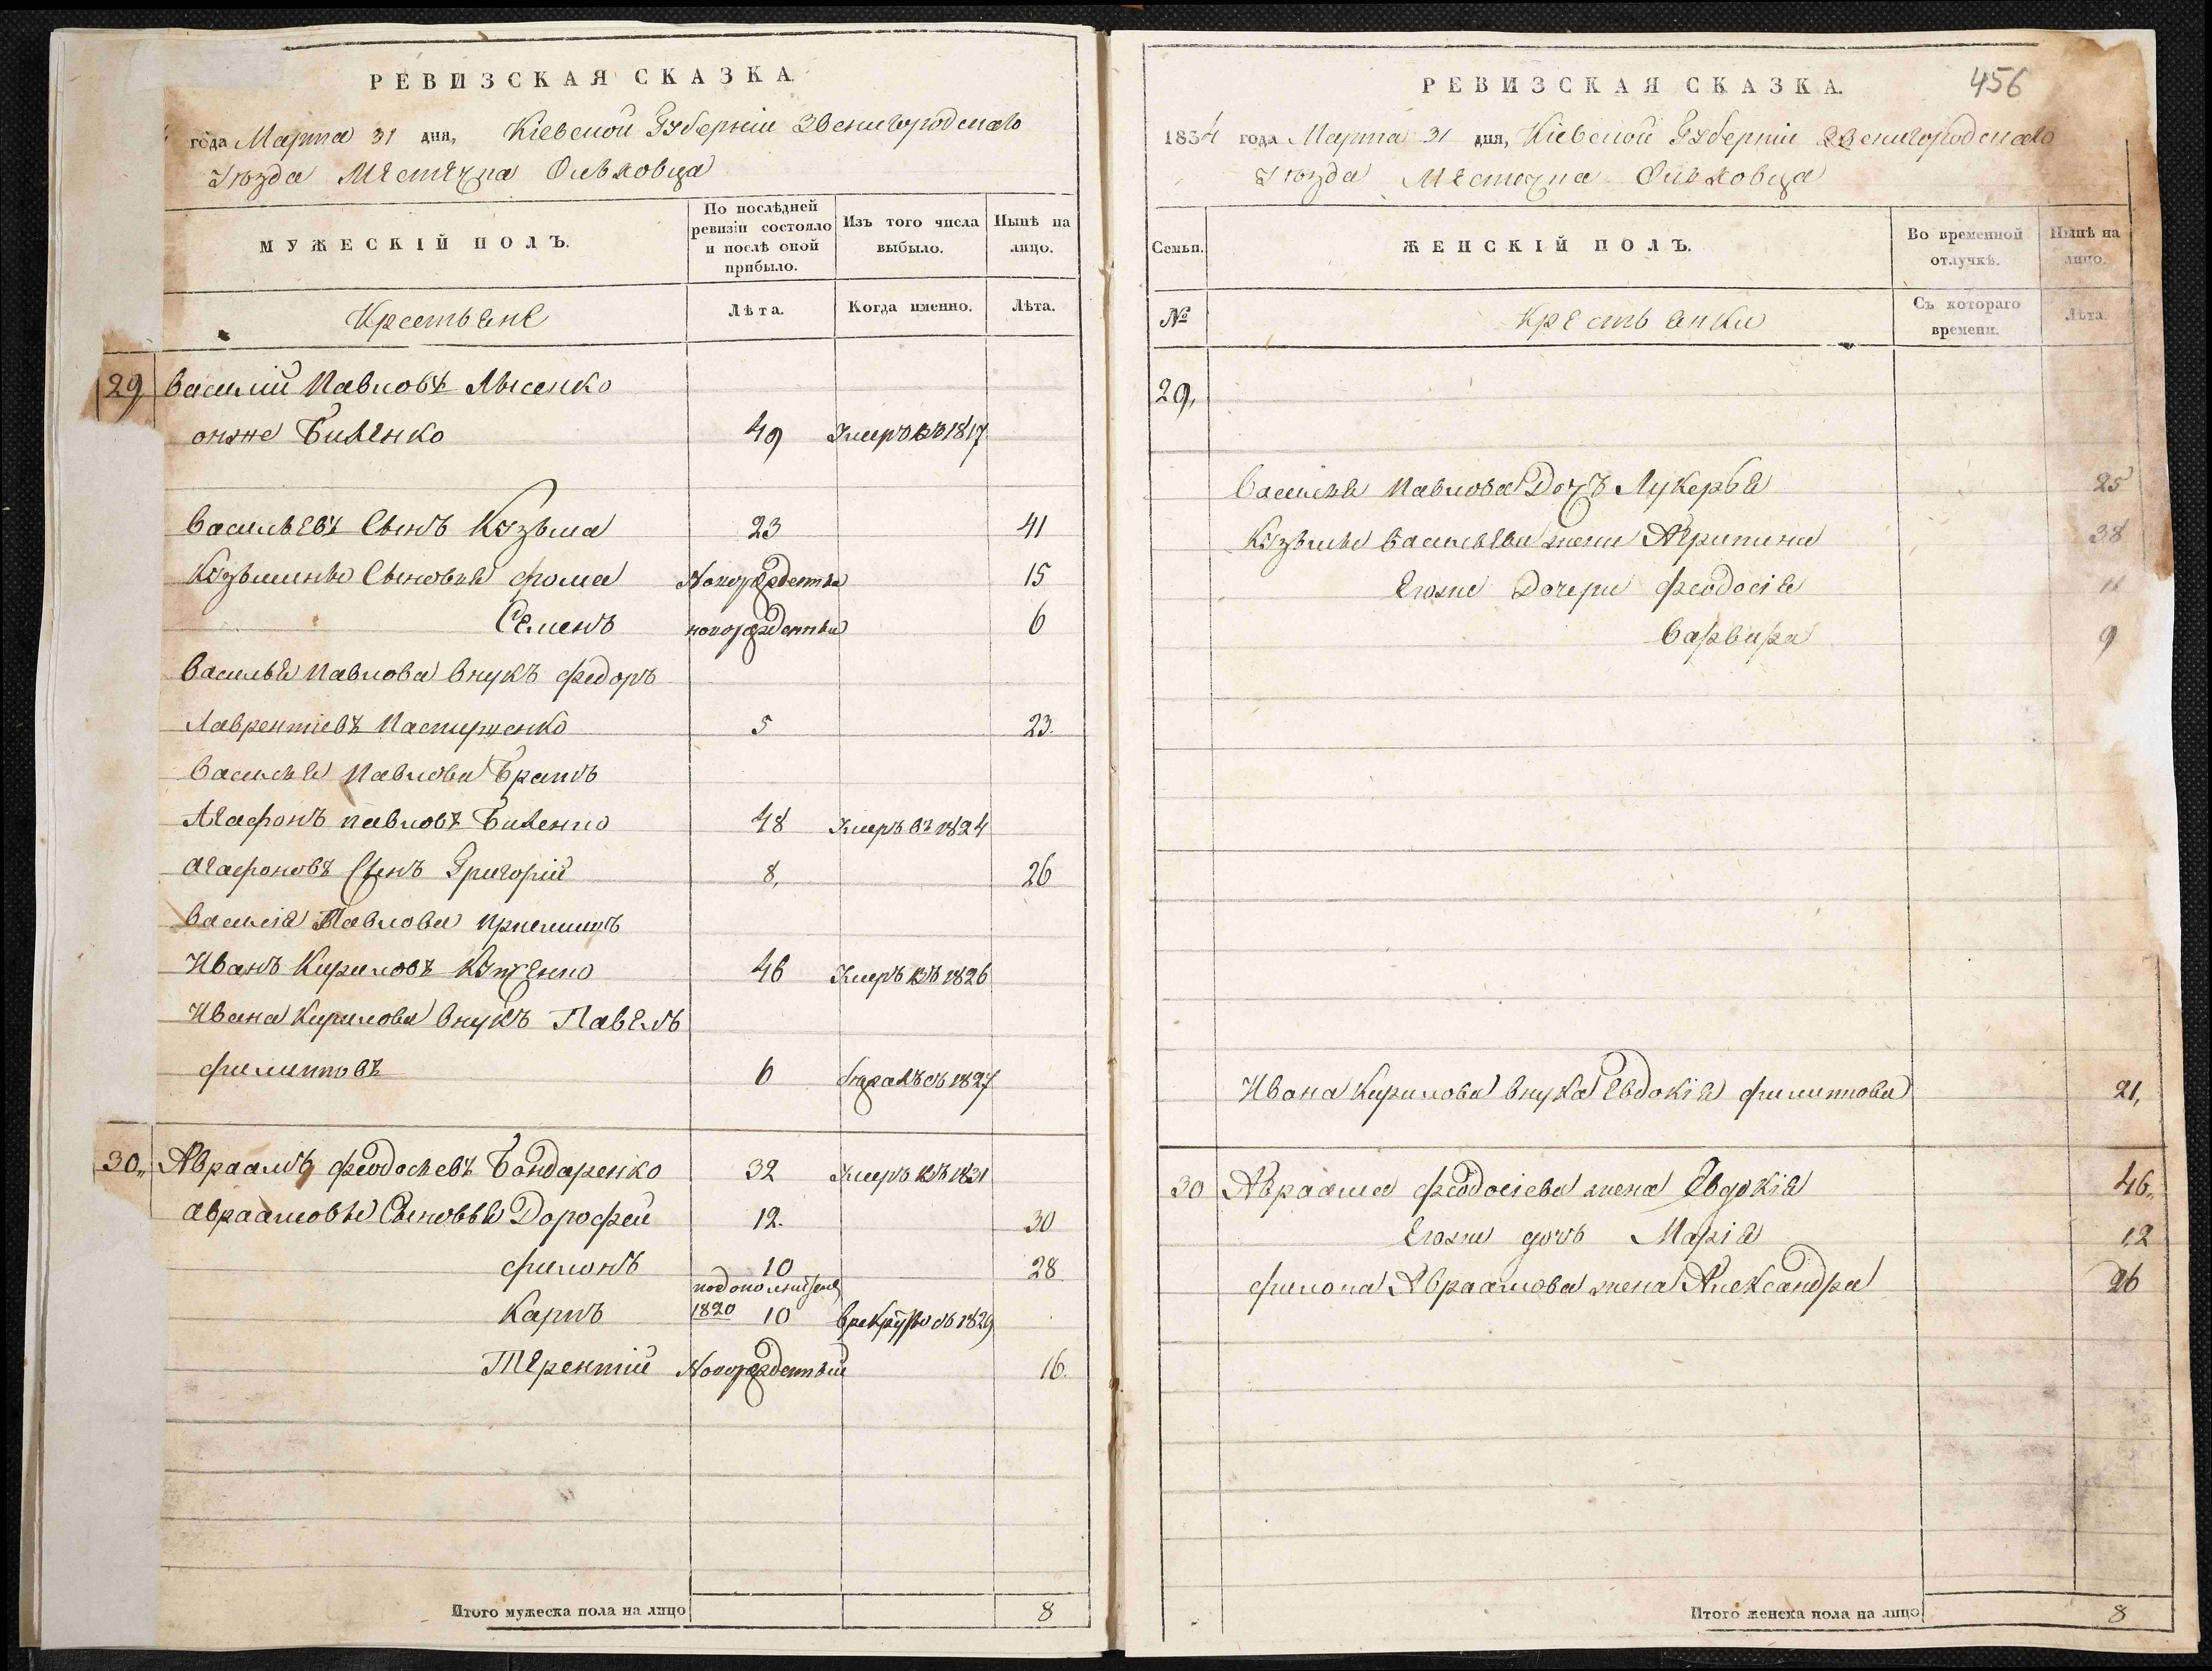 РЕВИЗСКАЯ СКАЗКА
года Марта 31 дня, Кіевской Губерніи Звенигородскаго
Уѣзда Местечка Ольховца
МУЖЕСКІЙ ПОЛЪ.
По послѣдней ревизіи состояло и послѣ оной прибыло.
Изъ того числа выбыло.
Нынѣ на лицо.
Крестьяне
Лѣта.
Когда именно.
Лѣта.
29, Василій Павловъ Лысенко
онже Биленко 49 Умеръ въ 1817
Васильевъ Сынъ Кузьма 23 41
Кузьмины Сыновья Фома Новорожденны 15
Семенъ новорожденны 6
Василья Павлова Внукъ Федоръ
Лаврентіевъ Пастушенко 5 23.
Василья Павлова Братъ
Агафонъ Павловъ Биленко 48 Умеръ въ 1824
Агафоновъ Сынъ Григорій 8, 26
Василія Павлова Приемышъ
Иванъ Кириловъ 46 Умеръ въ 1826
Ивана Кирилова Внукъ Павелъ
Филиповъ 6 бежалъ въ 1827
30,, Авраамъ Феодосьевъ Бондаренко 32 Умеръ въ 1831
Авраамовы Сыновья Дорофей 12. 30
Филонъ 10 28
Карпъ 1820 10 Врекруты въ 1829
Терентій Новорожденный 16.
Итого мужеска пола на лицо 8
РЕВИЗСКАЯ СКАЗКА.
456
1834 года Марта 31 дня, Кіевской Губерніи Звенигородскаго
Уѣзда Местечка Ольховца
Семьи.
ЖЕНСКІЙ ПОЛЪ.
Во временной отлучкѣ.
Нынѣ на лицо.
№
Крестьянки
Съ котораго времени.
Лѣта.
29,
Василья Павлова Дочь Лукерья 25
Кузьмы Васильева жена Агрипина 38
Егоже Дочери Феодосія 11
Варвара 9
Ивана Кирилова внука Евдокія Филипова 21,
30 Авраама Феодосіева жена Евдокія 46,,
Егоже дочь Марія 12
Филона Авраамова жена Александра 26
Итого женска пола на лицо. 8